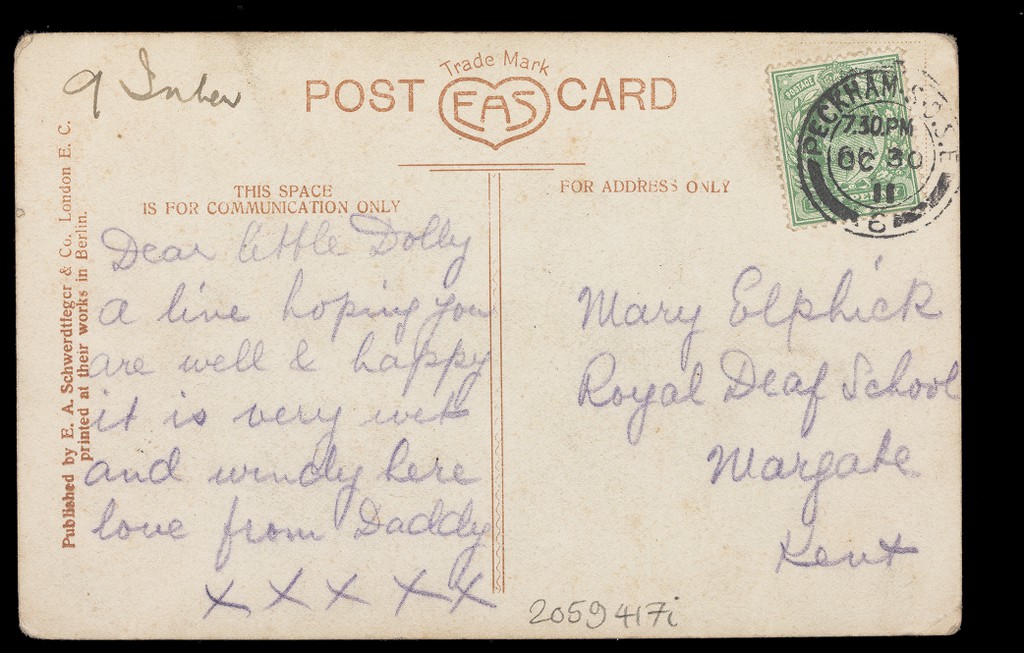 Trade Mark
POST EAS CARD
THIS SPACE
IS FOR COMMUNICATION ONLY
FOR ADDRESS ONLY
Published by E. A. Schwerdtfeger & Co., London E. C.
printed at their works in Berlin.
Dear little Dolly
A line hoping you
are well & happy
it is very wet
and windy here
love from Daddy
x x x x x
POSTAGE
PECKHAM. S.O. S.E
7.30.PM
OC 30
11
6
Mary Elphick
Royal Deaf School
Margate
Kent
2059417i